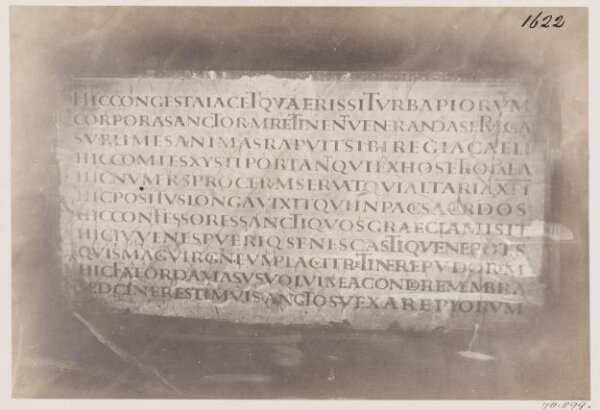 HICCONGESTAIACETQVAERISSITVRBAPIORVM
CORPORASANCTORVMRETINENTVENERANDASEPVLCRA
SVBLIMESANIMASRAPVITSIBIREGIACAELI
HICCOMITESXYSTIPORTANTQVIEXHOSTETROPAEA
HICNVMERVSPROCERVMSERVATQVIALTARIAXPI
HICPOSITVSLONGAVIXITQVIINPACESACERDOS
HICCONFESSORESSANCTIQVOSGRAECIAMISIT
HICIVVENESPVERIQSENESCASTIQVENEPOTES
QVISMAGEVIRGINEVMPLACVITRETINEREPVDOREM
HICFATEORDAMASVSVOLVIMEACONDEREMEMBRA
SEDCINERESTIMVISANCTOSVEXAREPIORVM
1622
70.899.